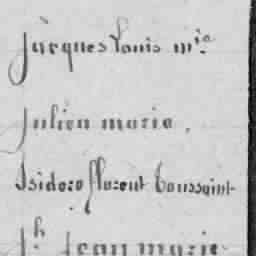 jàcques Louis m.ie
Julien marie.
Isidore florent toussaint
jh jean marie